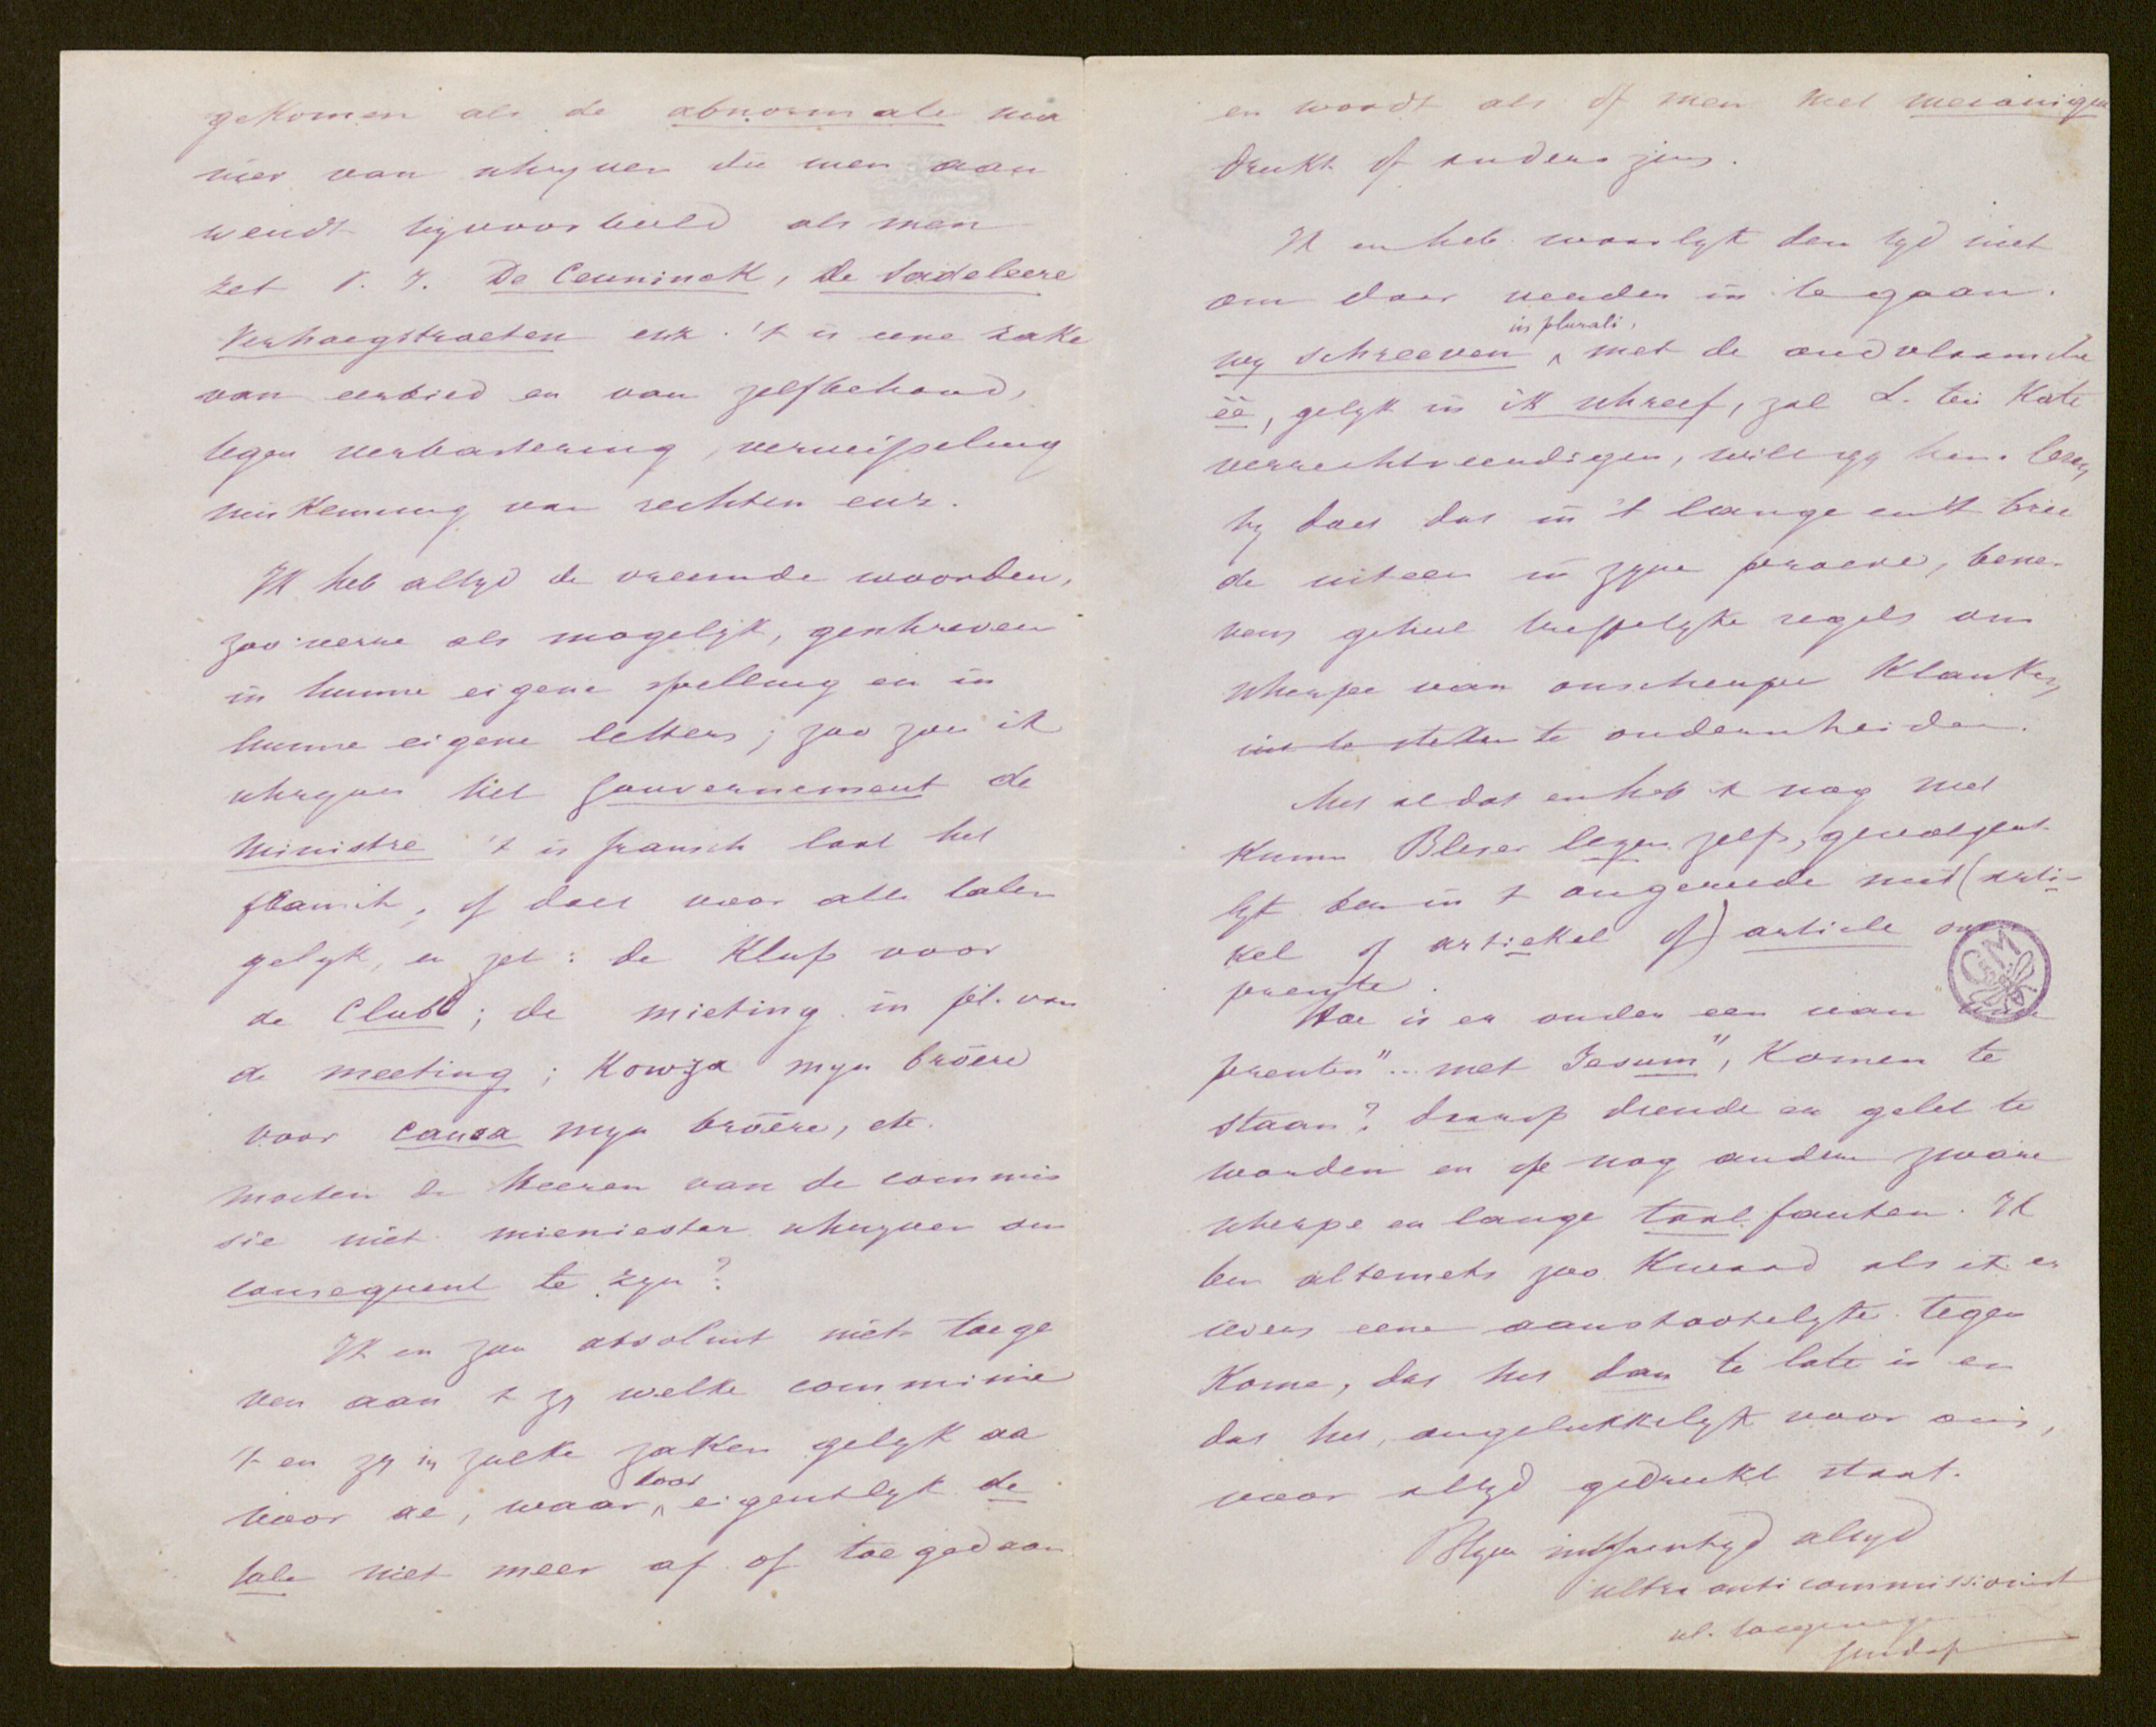 gekomen als de abnormale ma
nier van schryven die men aan
wendt byvoorbeeld als men
zet V. I. De Ceuninck, de Sadeleere
Verhoegstraeten enz. 't is eene zake
van eerbied en van zelfbehoud,
tegen verbastering, verwisseling
miskenning van rechten enz.
Ik heb altyd de vreemde woorden,
zoo verre als mogelyk, geschreven
in hunne eigene spelling en in
hunne eigene letters; zoo zou ik
schryven het gouvernement de
ministre 't is fransch laat het
fransch, of doet voor alle talen
gelyk, en zet: de Klup voor
de Club; de mieting in pl. van
de meeting; Kowza myn broere
voor causa myn broere, etc.
moeten de heeren van de commis
sie niet mieniester schryven om
consequent te zyn?
Ik en zou absolut niet toege
ven aan 't zy welke comminie
't en zy in zulke zaken gelyk aa
voor ae, waar door eigentlyk de
tale niet meer af of toegedaan
en wordt als of men met
drukt of anderszins.
Ik en heb waarlyk den tyd niet
om daar verder in te gaan.
wy schreeven in plurali, met de oudvlaamsche
êê, gelyk in ik schreef, zal L. ten Kate
verrechtveerdigen, wilt gy hem lezen,
hy doet dat in 't lange en 't bree
de uiteen in zyne proeve, bene-
vens geheel treffelyke regels om
scherpe van onscherpe klanken
te onderscheiden.
Met al dat en heb 'k nog niet
Kunn Bleser lezen zelfs, gevolgent-
lyk ben in 't ongereede met (arti-
kel of artiekel of) article om
prente.
Hoe is er onder een van
prenten "... met Jesum", komen te
staan? daarop diende er gelet te
worden en op nog andere zware
scherpe en lange taalfauten. Ik
ben altemets zoo kwaad als ik er
ievers eene aanstootelyke tegen
kome, dat het dan te late is en
dat het, ongelukkelyk voor ons,
voor altyd gedrukt staat.
Blyve altyd
ultra anti commissionist
GM